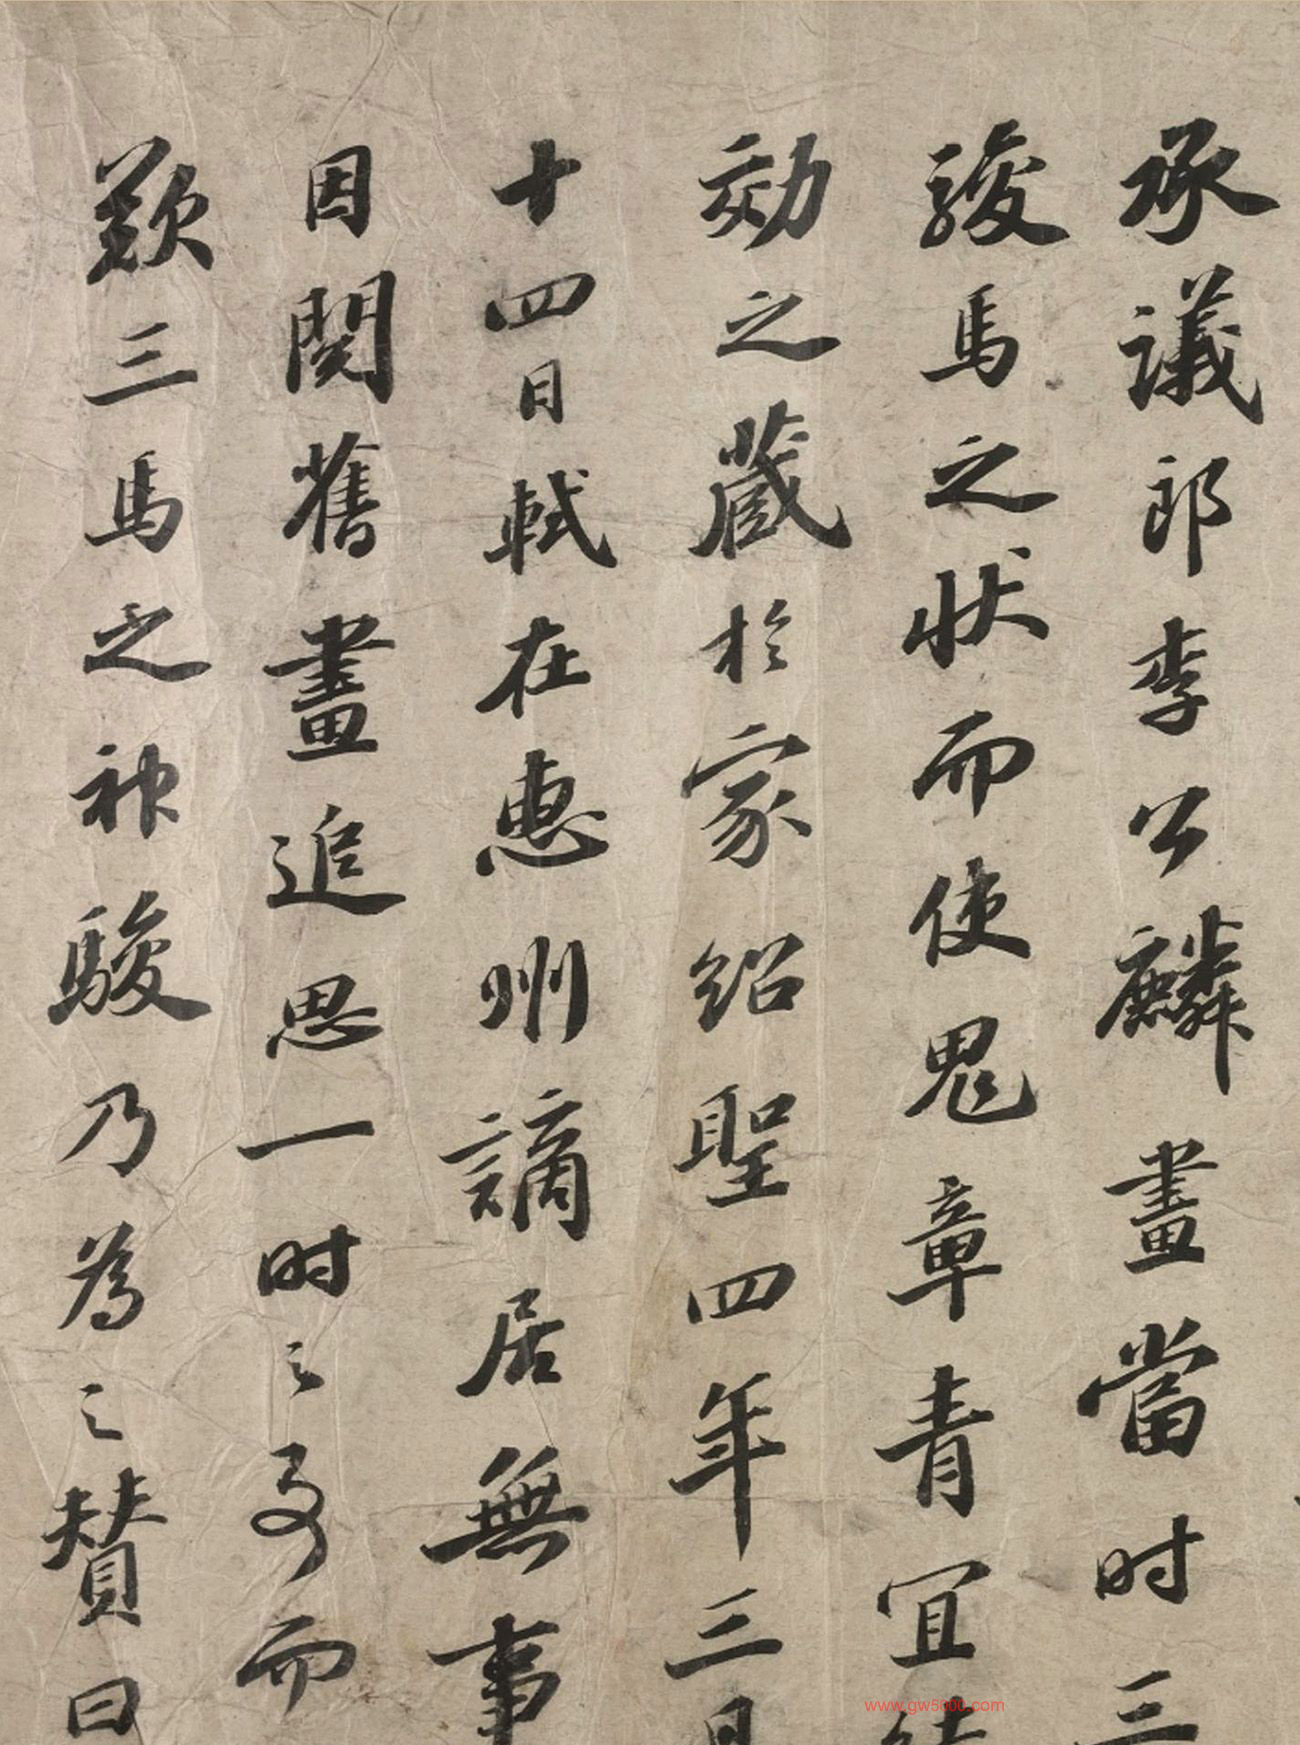 承議郎李公麟畫當时三
駿馬之状而使鬼章青宜结
効之藏於家紹聖四年三月
十四日軾在惠州謫居無事
因閱舊畫追思一时之事而
歎三馬之神駿乃為之賛曰
www.gw5000.com